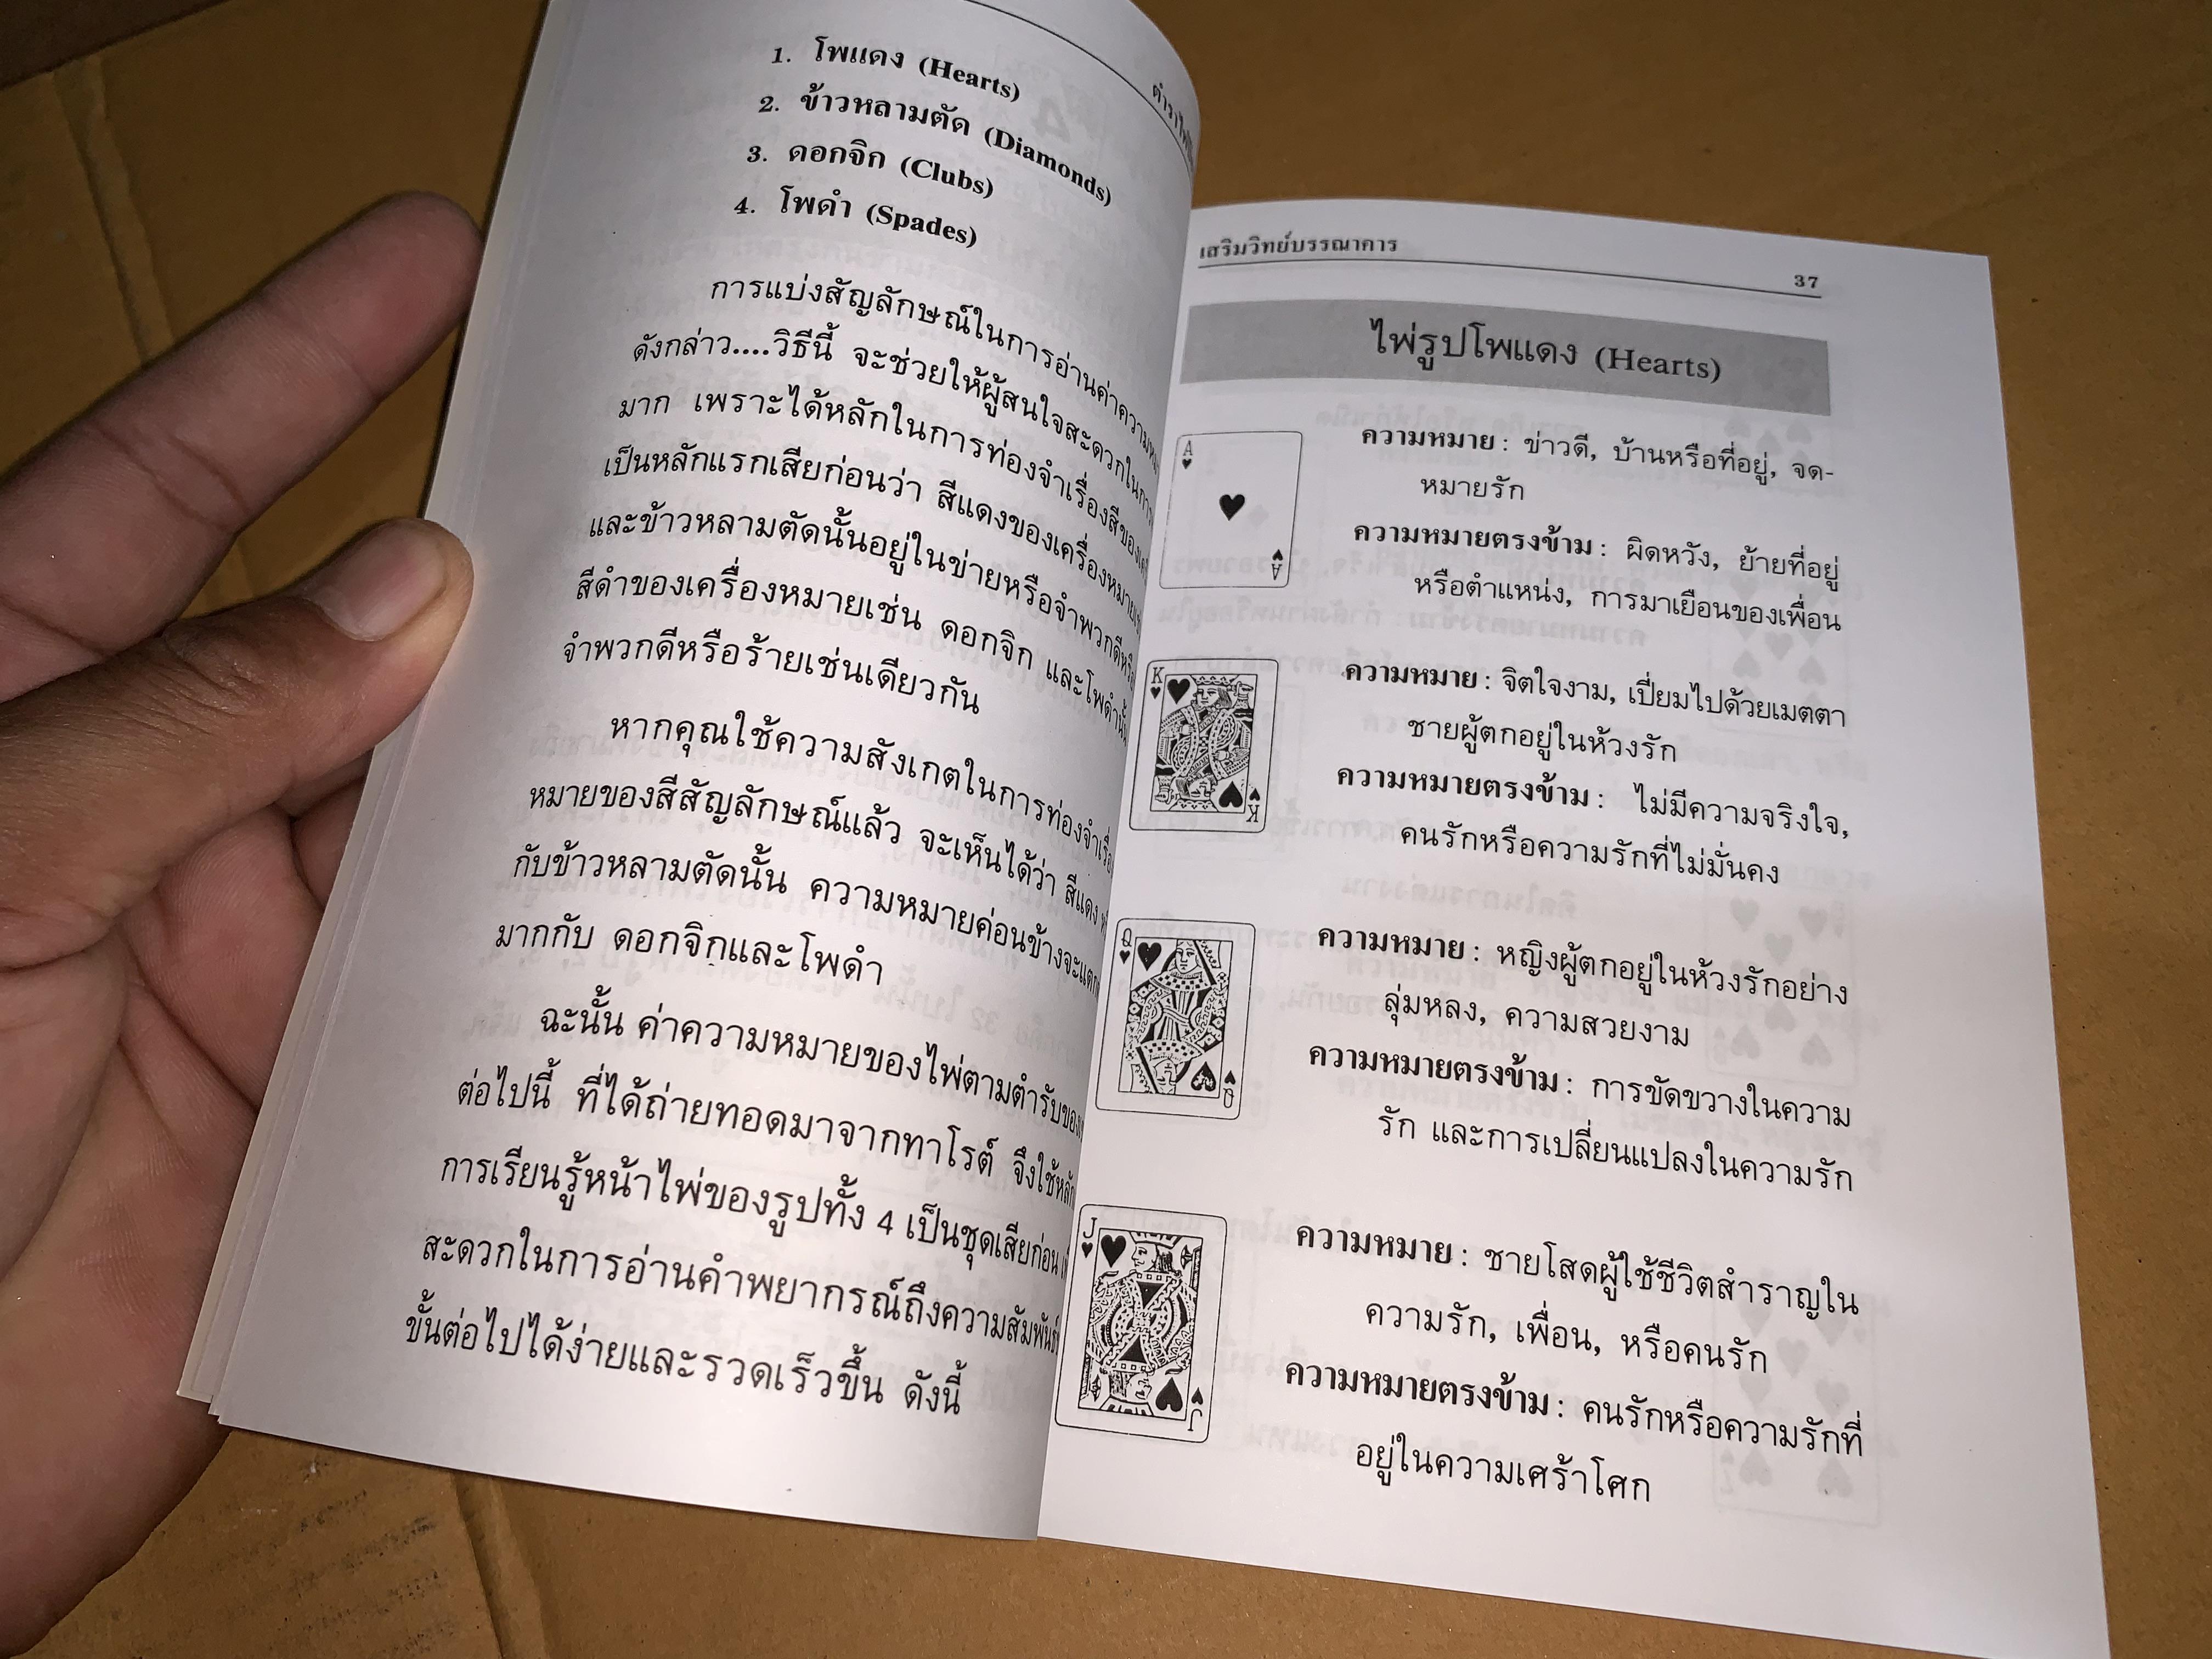 1. โพแดง (Hearts)
2. ข้าวหลามตัด (Diamonds)
3. ดอกจิก (Clubs)
4. โพดำ (Spades)
การแบ่งสัญลักษณ์ในการอ่านค่าความ
ดังกล่าว....วิธีนี้ จะช่วยให้ผู้สนใจสะดวกในการ
มาก เพราะได้หลักในการท่องจำเรื่องสีของ
เป็นหลักแรกเสียก่อนว่า สีแดงของเครื่องหมาย
และข้าวหลามตัดนั้นอยู่ในข่ายหรือจำพวกดี
สีดำของเครื่องหมายเช่น ดอกจิก และโพดำนั้น
จำพวกดีหรือร้ายเช่นเดียวกัน
หากคุณใช้ความสังเกตในการท่องจำ
หมายของสีสัญลักษณ์แล้ว จะเห็นได้ว่า สีแดง
กับข้าวหลามตัดนั้น ความหมายค่อนข้างจะ
มากกับ ดอกจิกและโพดำ
ฉะนั้น ค่าความหมายของไพ่ตามตำรับของ
ต่อไปนี้ ที่ได้ถ่ายทอดมาจากทาโรต์ จึงใช้หลัก
การเรียนรู้หน้าไพ่ของรูปทั้ง 4 เป็นชุดเสียก่อน
สะดวกในการอ่านคำพยากรณ์ถึงความสัมพันธ์
ขั้นต่อไปได้ง่ายและรวดเร็วขึ้น ดังนี้
เสริมวิทย์บรรณาคาร 37
ไพ่รูปโพแดง (Hearts)
A
ความหมาย : ข่าวดี, บ้านหรือที่อยู่, จด-
หมายรัก
ความหมายตรงข้าม : ผิดหวัง, ย้ายที่อยู่
หรือตำแหน่ง, การมาเยือนของเพื่อน
A
K
ความหมาย : จิตใจงาม, เปี่ยมไปด้วยเมตตา
ชายผู้ตกอยู่ในห้วงรัก
ความหมายตรงข้าม : ไม่มีความจริงใจ,
คนรักหรือความรักที่ไม่มั่นคง
K
Q
ความหมาย : หญิงผู้ตกอยู่ในห้วงรักอย่าง
ลุ่มหลง, ความสวยงาม
ความหมายตรงข้าม : การขัดขวางในความ
รัก และการเปลี่ยนแปลงในความรัก
Q
J
ความหมาย : ชายโสดผู้ใช้ชีวิตสำราญใน
ความรัก, เพื่อน, หรือคนรัก
ความหมายตรงข้าม : คนรักหรือความรักที่
อยู่ในความเศร้าโศก
J